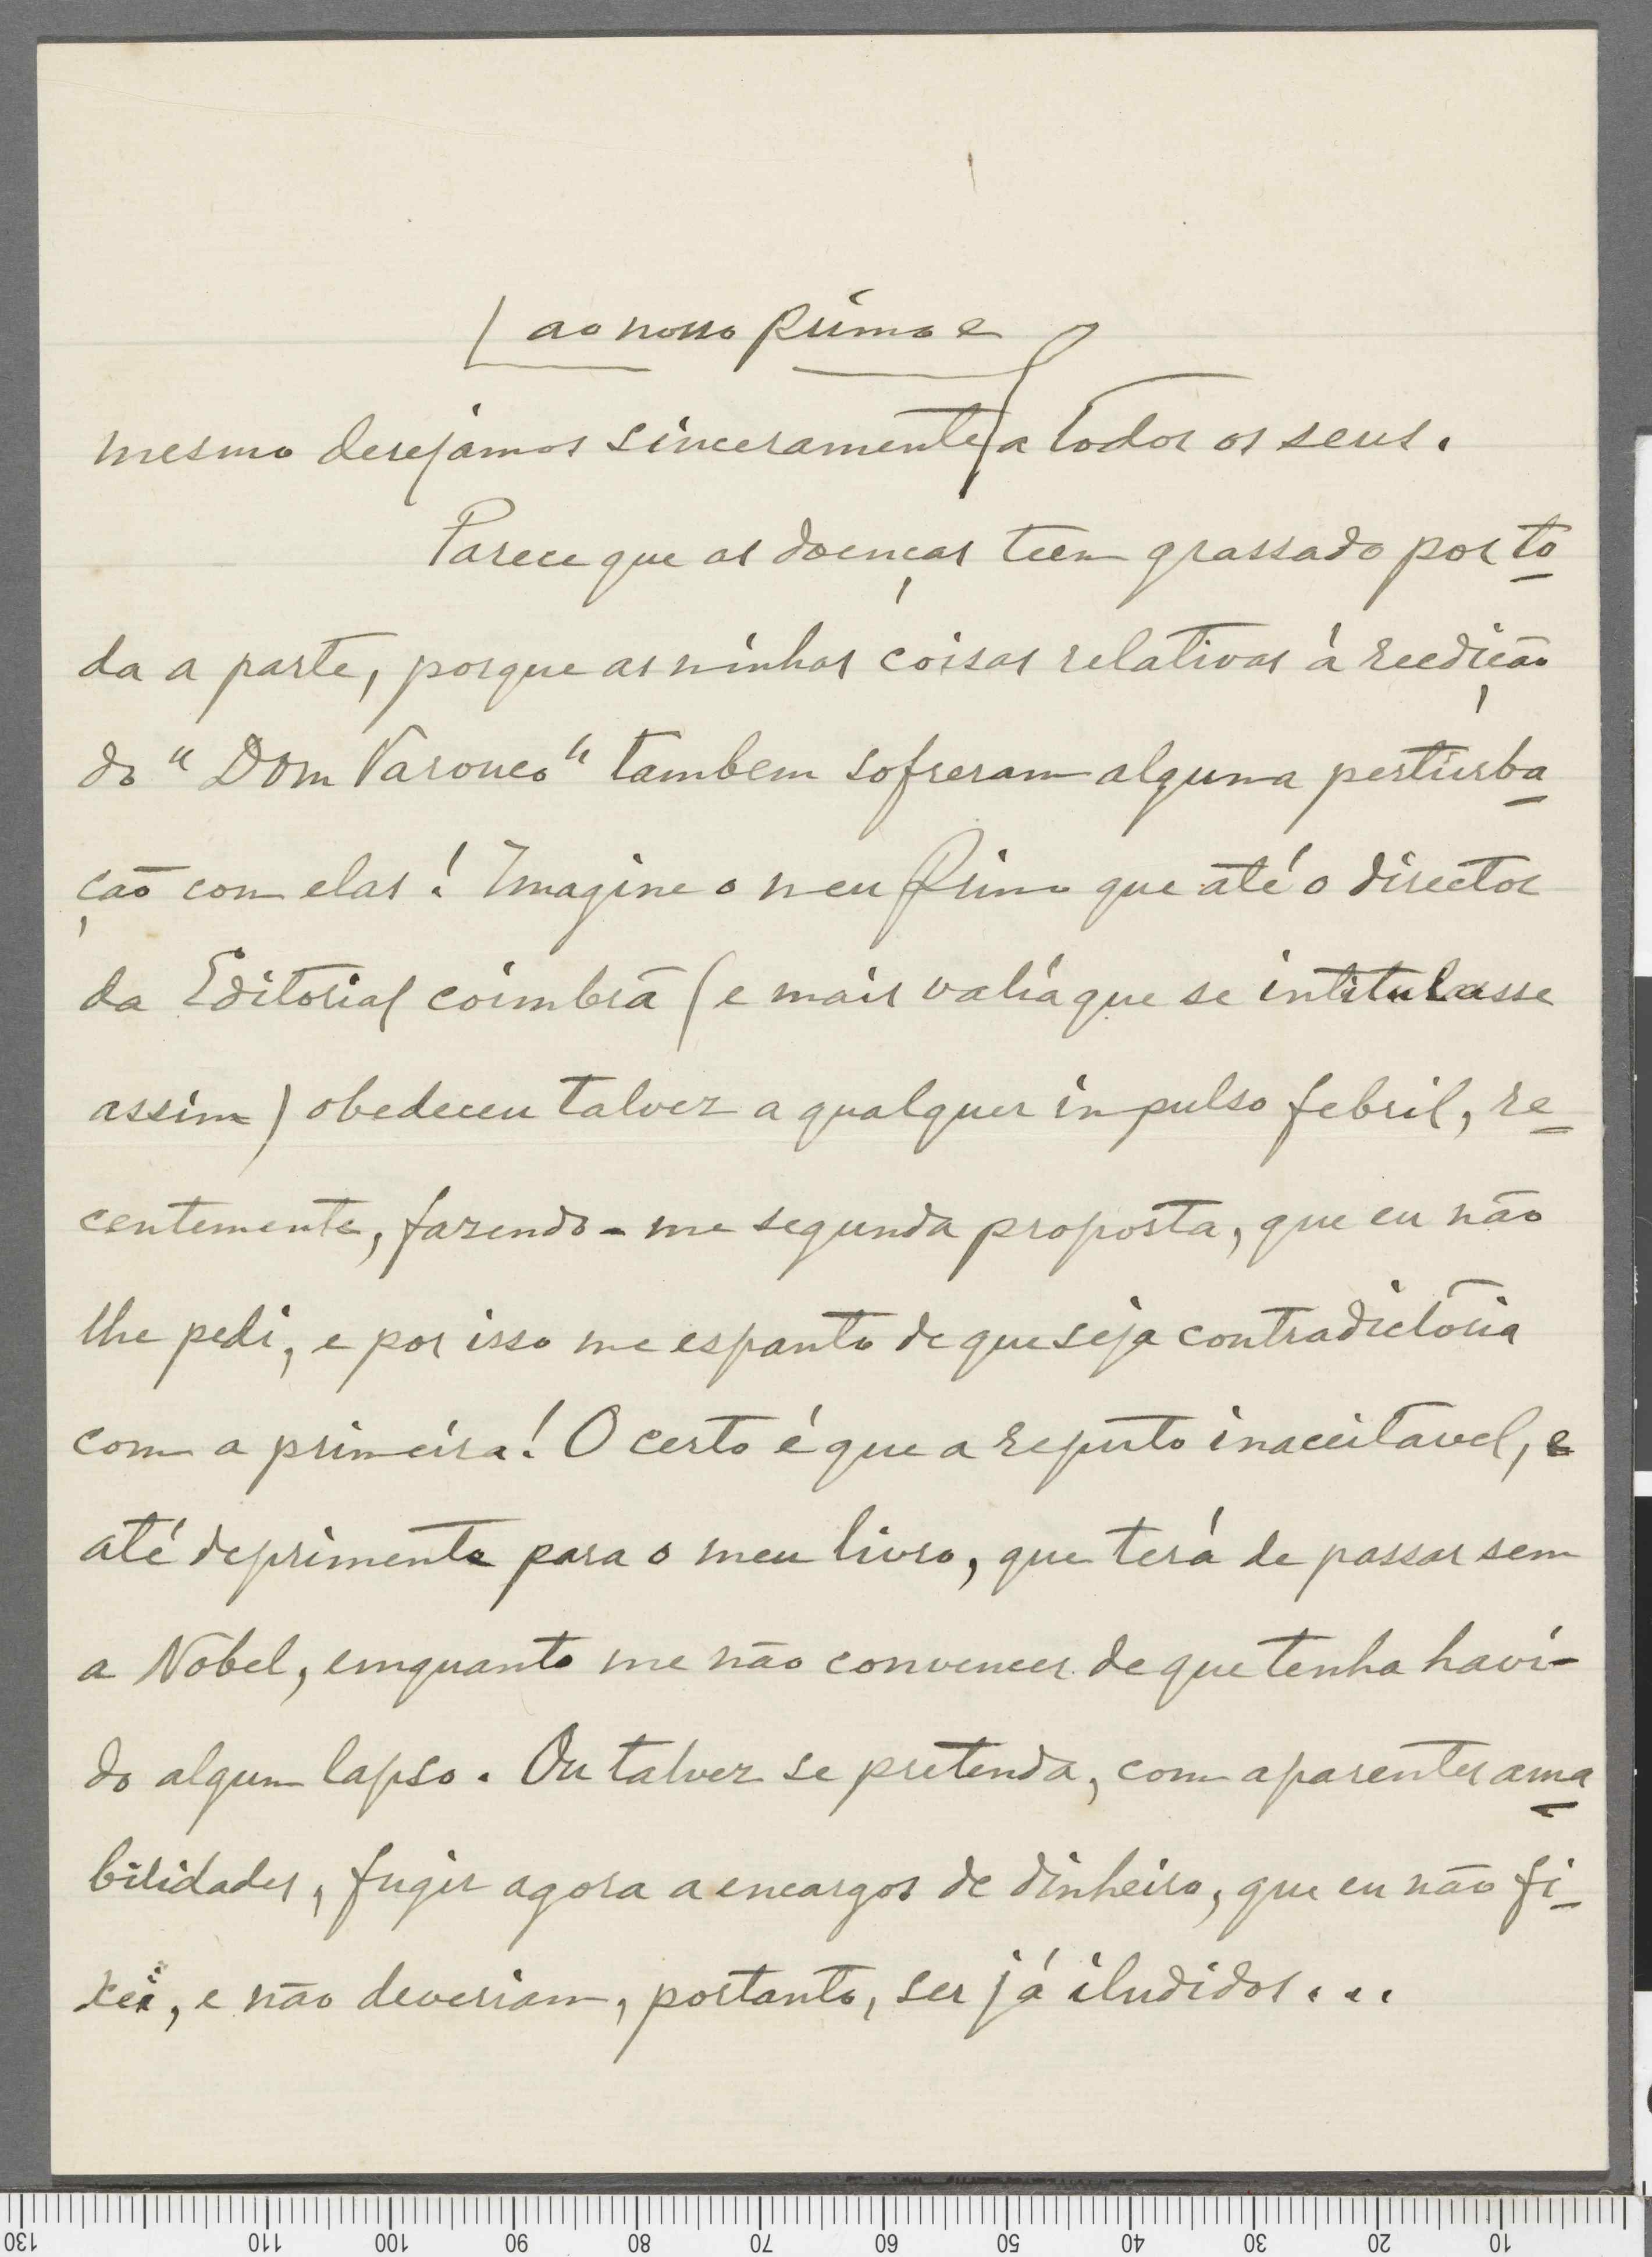 ao nosso Primo e
mesmo desejâmos sinceramente a todos os seus.
Parece que as doenças teem grassado por to
da a parte, porque as minhas coisas relativas á reedição
do "Dom Varonco" tambem sofreram alguma perturba
ção com elas! Imagine o meu Primo que até o director
da Editorial coimbrã (e mais valia que se intitulasse
assim) obedeceu talvez a qualquer impulso febril, re
centemente, fazendo-me segunda proposta, que eu não
lhe pedi, e por isso me espanto de que seja contradictória
com a primeira! O certo é que a reputo inaceitavel, e
até deprimente para o meu livro, que terá de passar sem
a Nobel, emquanto me não convencer de que tenha havi-
do algum lapso. Ou talvez se pretenda, com aparentes ama
bilidades, fugir agora a encargos de dinheiro, que eu não fi-
xei, e não deveriam, portanto, ser já iludidos...
130 110 100 90 80 70 60 50 40 30 20 10